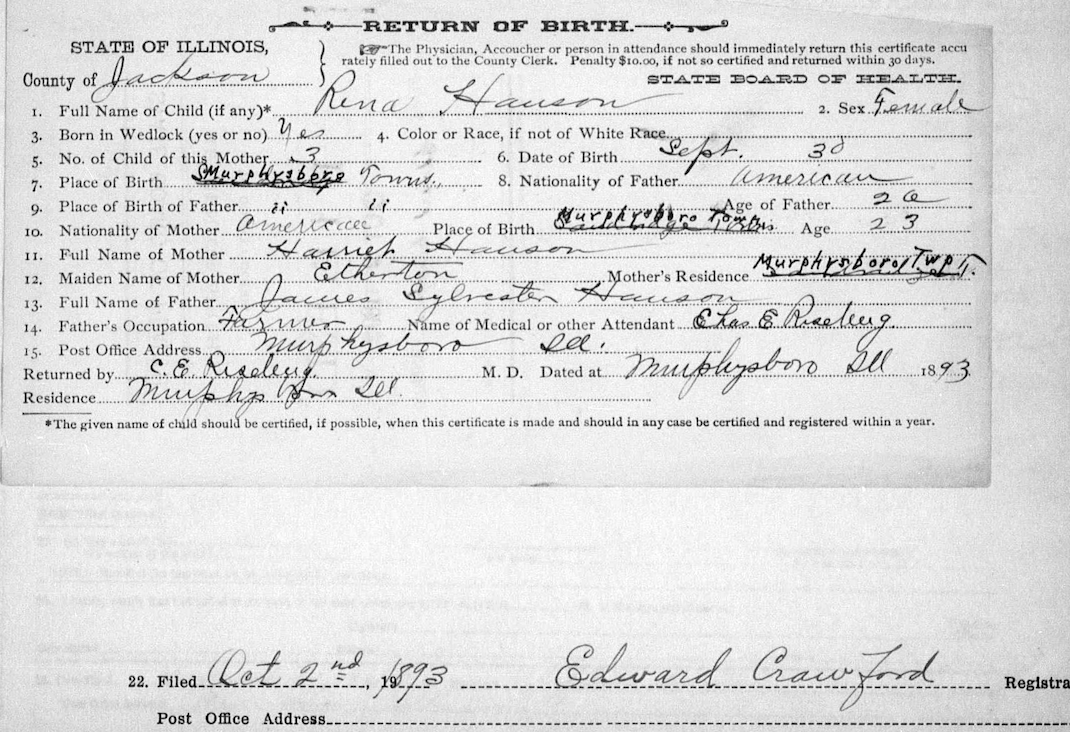 RETURN OF BIRTH.
STATE OF ILLINOIS,
County of Jackson
The Physician, Accoucher or person in attendance should immediately return this certificate accu
rately filled out to the County Clerk. Penalty $10.00, if not so certified and returned within 30 days.
STATE BOARD OF HEALTH.
1. Full Name of Child (if any)* Rena Hanson 2. Sex Female
3. Born in Wedlock (yes or no) Yes 4. Color or Race, if not of White Race
5. No. of Child of this Mother 3 6. Date of Birth Sept. 30
7. Place of Birth Murphysboro Towns. 8. Nationality of Father American
9. Place of Birth of Father " " Age of Father 26
10. Nationality of Mother American Place of Birth Murphysboro Town Age 23
11. Full Name of Mother Harriet Hanson
12. Maiden Name of Mother Etherton Mother's Residence Murphysboro Twp
13. Full Name of Father James Sylvester Hanson
14. Father's Occupation Farmer Name of Medical or other Attendant Chas E Riseling
15. Post Office Address Murphysboro Ill.
Returned by C. E. Riseling M. D. Dated at Murphysboro Ill 1893
Residence Murphysboro Ill.
*The given name of child should be certified, if possible, when this certificate is made and should in any case be certified and registered within a year.
22. Filed Oct 2nd, 1893 Edward Crawford Registra
Post Office Address